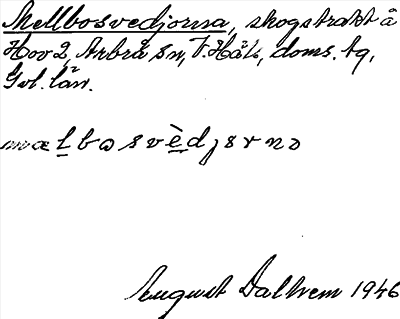 Mellbosvedjorna, skogstrakt å
Hov 2, Arbrå sn, V. Häls. doms. tg,
Gvl. län.
mælbosvèdjɜrnɔ
August Dalhem 1946